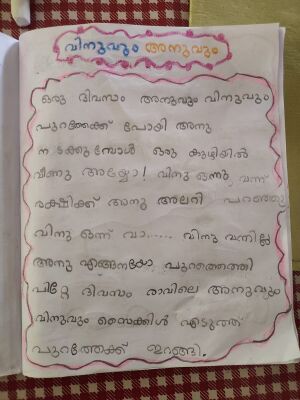 വിനുവും അനുവും
ഒരു ദിവസം അനുവും വിനുവും
പുറത്തേക്ക് പോയി അനു
നടക്കുമ്പോൾ ഒരു കുഴിയിൽ
വീണു അയ്യോ! വിനു ഒന്നു വന്ന്
രക്ഷിക്ക് അനു അലറി പറഞ്ഞു
വിനു ഒന്ന് വാ...... വിനു വന്നില്ല
അനു എങ്ങനയോ പുറത്തെത്തി
പിറ്റേ ദിവസം രാവിലെ അനുവും
വിനുവും സൈക്കിൾ എടുത്ത്
പുറത്തേക്ക് ഇറങ്ങി.